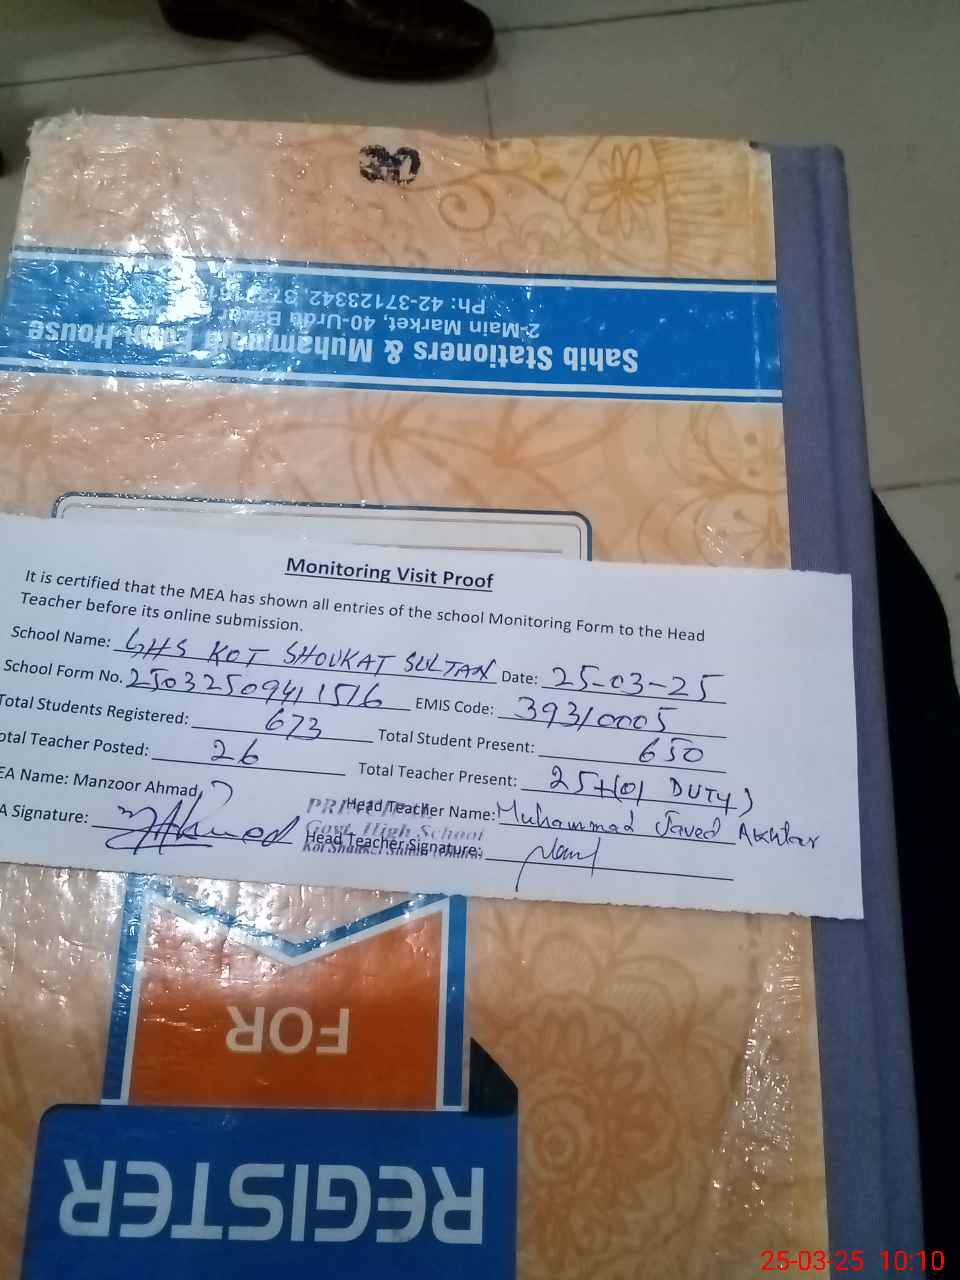 Sahib Stationers & Muhammad House
2-Main Market, 40-Urdu
Ph: 42-37123342,
Monitoring Visit Proof
It is certified that the MEA has shown all entries of the school Monitoring Form to the Head
Teacher before its online submission.
School Name: GHS KOT SHOUKAT SULTAN Date: 25-03-25
School Form No. EMIS Code: 39310005
Total Students Registered: 673 Total Student Present: 650
otal Teacher Posted: 26 Total Teacher Present: 25+(01 DUTY)
EA Name: Manzoor Ahmad Head Teacher Name: Muhammad Javed Akhtar
A Signature: Head Teacher Signature:
Govt. High School
FOR
REGISTER
25-03-25 10:10